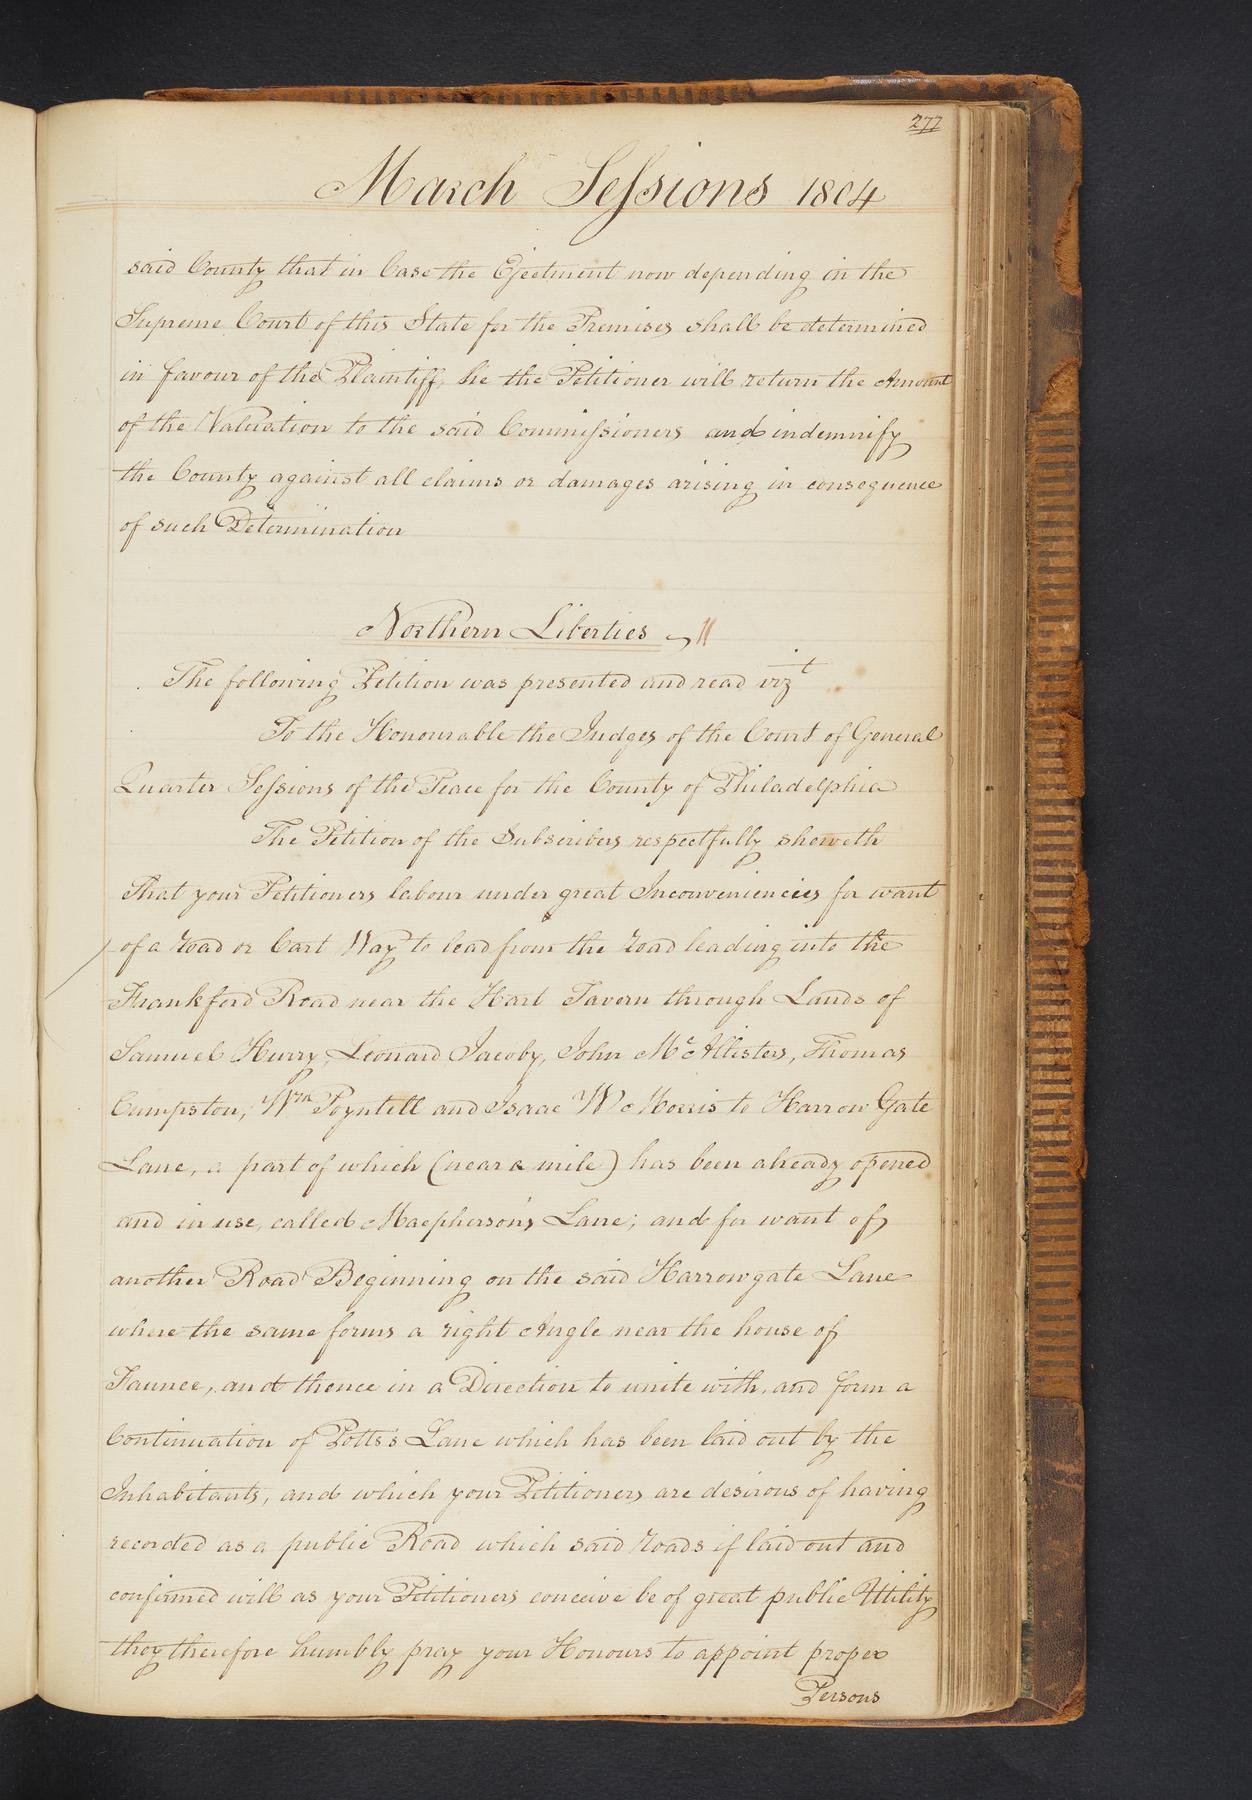 277
March Sessions 1804
said County that in Case the Ejectment now depending in the
Supreme Court of this State for the Premises shall be determined
in favour of the Plaintiff, he the Petitioner will return the Amount
of the Valuation to the said Commissioners and indemnify
the County against all claims or damages arising in consequence
of such Determination
Northern Liberties
The following Petition was presented and read vizt
To the Honourable the Judges of the Court of General
Quarter Sessions of the Peace for the County of Philadelphia
The Petition of the Subscribers respectfully sheweth
That your Petitioners labour under great Inconveniencies for want
of a road or Cart Way to lead from the road leading into the
Frankford Road near the Hart Tavern through Lands of
Samuel Hurry, Leonard Jacoby, John McAllisters, Thomas
Cumpston, Wm Poyntell and Isaac W Morris to Harrow Gate
Lane, a part of which (near a mile) has been already opened
and in use, called Macpherson's Lane; and for want of
another Road Beginning on the said Harrowgate Lane
where the same forms a right Angle near the house of
Faunce, and thence in a Direction to unite with, and form a
Continuation of Potts's Lane which has been laid out by the
Inhabitants, and which your Petitioners are desirous of having
recorded as a public Road which said roads if laid out and
confirmed will as your Petitioners conceive be of great public Utility
they therefore humbly pray your Honours to appoint proper
Persons